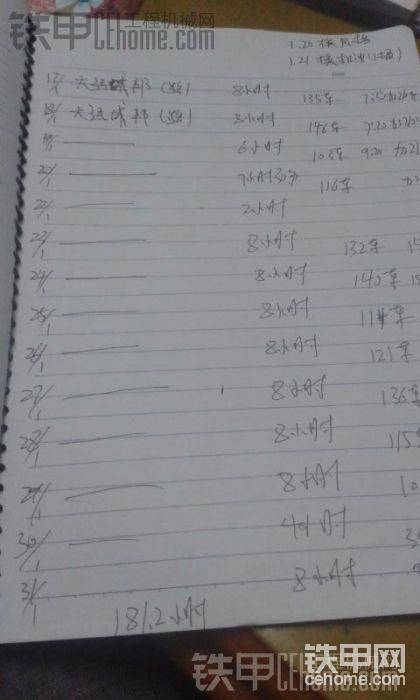 铁甲工程机械网
CEhome.com
1.20 换风格
1.21 换机油(1桶)
17/1 大运城邦 8小时 135车
18/1 大运城邦 8小时 146车 7:20
19/1 6小时 103车 9:20
20/1 7小时30分 116车
21/1 2小时
23/1 8小时 132车
24/1 8小时 140车
25/1 8小时 114车
26/1 8小时 121车
27/1 8小时 136车
28/1 8小时 115
29/1 8小时 10
30/1 4小时
31/1 8小时
181.2小时
铁甲网
cehome.com
铁甲工程机械网
CEhome.com